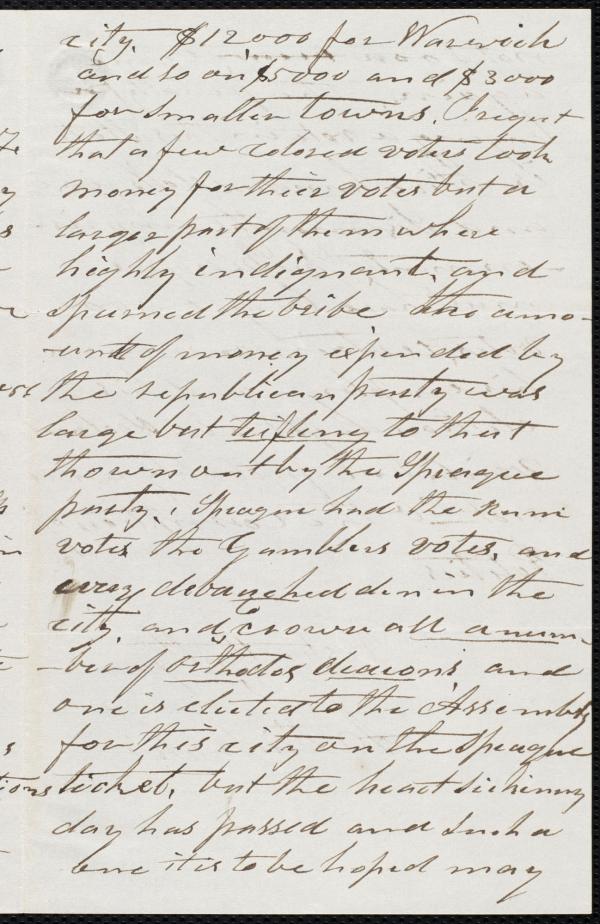 city. $12000 for Warwick
and so on $5000 and $3000
for smaller towns. I regret
that a few colored voters took
money for their votes but a
larger part of them where
highly indignant. and
spurned the bribe the amo-
-unt of money expended by
the republican party was
large but trifling to that
thown out by the Sprague
party. Sprague had the Rum
votes the Gamblers votes. and
every debauched den in the
city. and to crown all a num-
-ber of orthodox deacons, and
one is elected to the Assembly
for this city on the Sprague
ticket, but the heart sickening
day has passed and such a
one it is to be hoped may